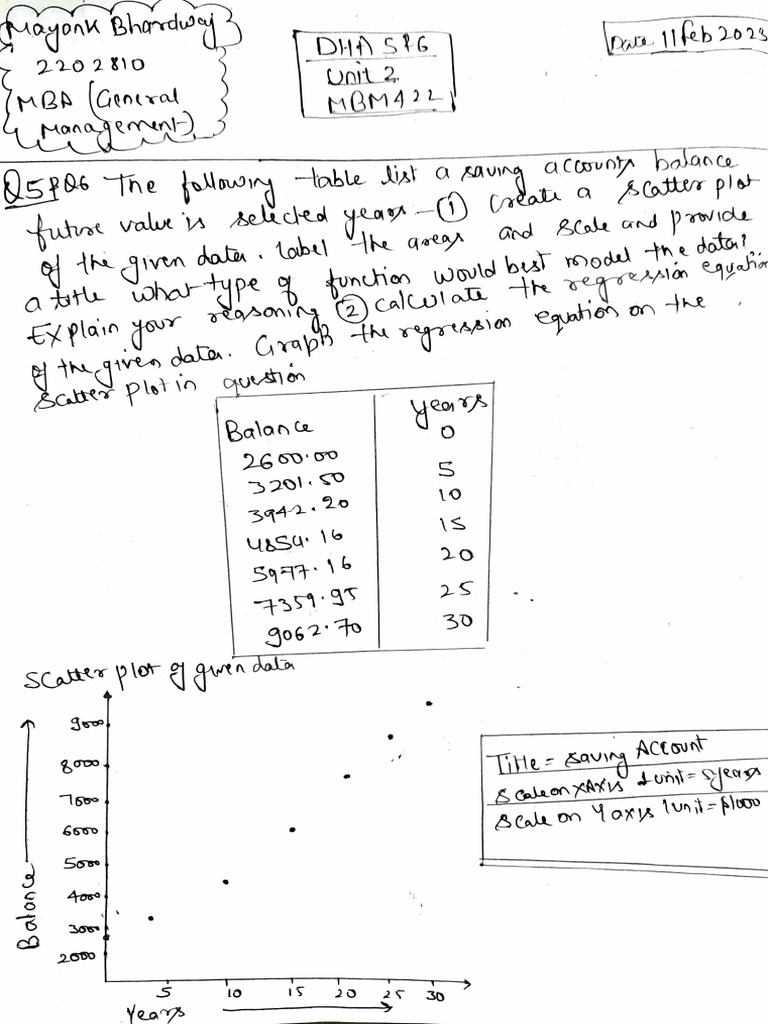 Mayank Bhardwaj
2202810
MBA (General
Management)
DHA 5&6
Unit 2
MBM422
Date 11 Feb 2023
Q5&Q6 The following table list a saving accounts balance
future value is selected years - ① Create a scatter plot
of the given data. Label the areas and scale and provide
a title what type of function would best model the data?
Explain your reasoning ② Calculate the regression equation
of the given data. Graph the regression equation on the
scatter plot in question
Balance Years
2600.00 0
3201.50 5
3942.20 10
4854.16 15
5977.16 20
7359.95 25
9062.70 30
Scatter plot of given data
Balance
9000
8000
7000
6000
5000
4000
3000
2000
5 10 15 20 25 30
Years
Title = saving Account
Scale on x Axis 1 unit = 5 years
Scale on Y axis 1 unit = $1000